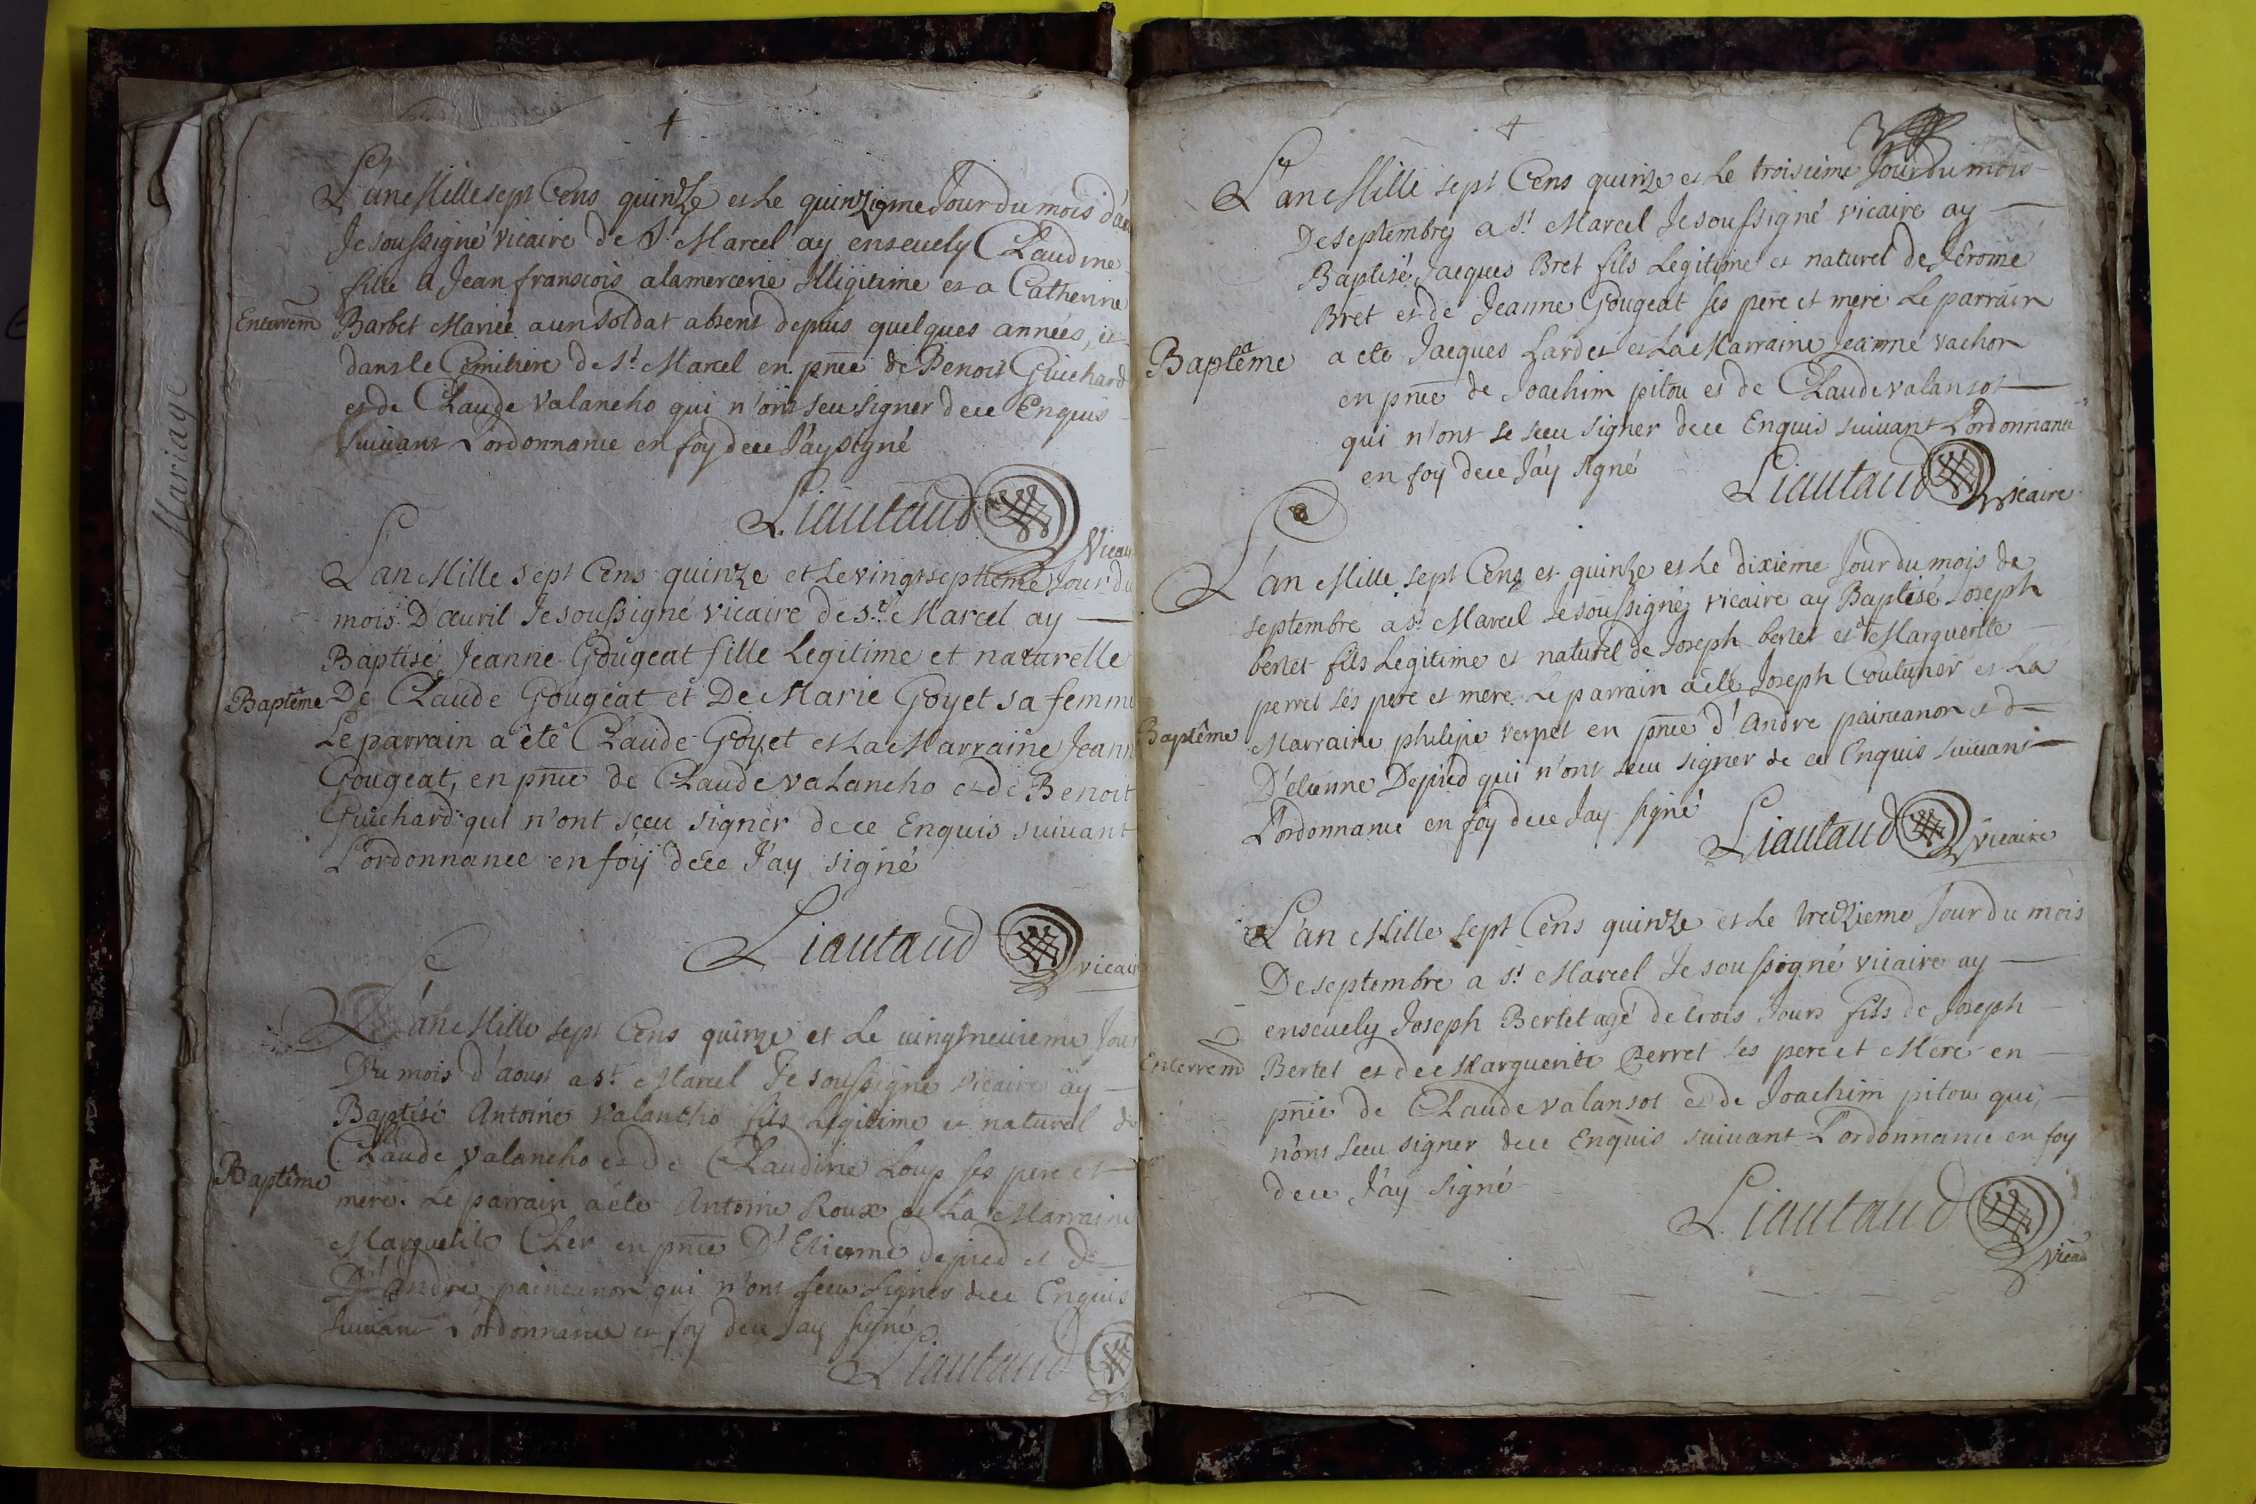 L'an Mille sept Cens quinze et Le quinzieme Jour du mois d'
Je soussigné vicaire de St Marcel ay ensevely Claudine
fille a Jean fransois alamercerie Illigitime et a Catherine
Enterrem
Barbet Mariée a un Soldat absent depuis quelques années, et
dans le Cemitiere de St Marcel en pnce de Benoit Guichard
et de Claude Valancho qui n'ont sceu signer de ce Enquis
suivant L'ordonnance en foy de ce J'ay signé
Liautaud
Vicai
L'an Mille sept Cens quinze et Le vingtseptieme Jour du
mois D'avril Je soussigné vicaire de St Marcel ay
Baptisé Jeanne Gougeat fille Legitime et naturelle
Baptême
De Claude Gougeat et De Marie Goyet sa femme
Le parrain a êté Claude Goyet et La Marraine Jeann
Gougeat, en pnce de Claude Valancho et de Benoit
Guichard qui n'ont sceu signer de ce Enquis suivant
L'ordonnance en foy de ce J'ay signé
Liautaud
vicair
L'an Mille sept Cens quinze et Le vingtneuvieme Jour
Du mois d'aoust a St Marcel Je soussigné vicaire ay
Baptisé Antoine Valancho fils Legitime et naturel de
Claude Valancho et de Claudine Loup ses pere et
Baptême
mere. Le parrain a êté Antoine Roux et La Marraine
Marguerite Cher en pnce D'Etienne depied et de
D'andré paincanon qui n'ont sceu signer de ce Enquis
suivant L'ordonnance en foy de ce J'ay signé
Liautaud
Mariage
3
L'an Mille sept Cens quinze et Le troisieme Jour du mois
De septembre a St Marcel Je soussigné vicaire ay
Baptisé Jacques Bret fils Legitime et naturel de Jerome
Bret et de Jeanne Gougeat ses pere et mere Le parrain
Baptême
a eté Jacques Lardet et La Marraine Jeanne vachon
en pnce de Joachim pitou et de Claude valansot
qui n'ont se sceu signer de ce Enquis suivant L'ordonnance
en foy de ce J'ay signé
Liautaud
vicaire
L'an Mille sept Cens et quinze et Le dixieme Jour du mois de
septembre a St Marcel Je soussigné vicaire ay Baptisé Joseph
bertet fils Legitime et naturel de Joseph bertet et Marguerite
perret ses pere et mere Le parrain a êté Joseph et La
Baptême
Marraine philipe verpet en pnce d'Andre paincanon et d
D'etienne Depied qui n'ont sceu signer de ce Enquis suivant
L'ordonnance en foy de ce J'ay signé
Liautaud
vicaire
L'an Mille sept Cens quinze et Le treizieme Jour du mois
De septembre a St Marcel Je soussigné vicaire ay
ensevely Joseph Bertet agé de trois Jours fils de Joseph
Enterrem
Bertet et de Marguerite Perret ses pere et Mere en
pnce de Claude valansot et de Joachim pitou qui
n'ont sceu signer de ce Enquis suivant L'ordonnance en foy
de ce J'ay signé
Liautaud
vicai